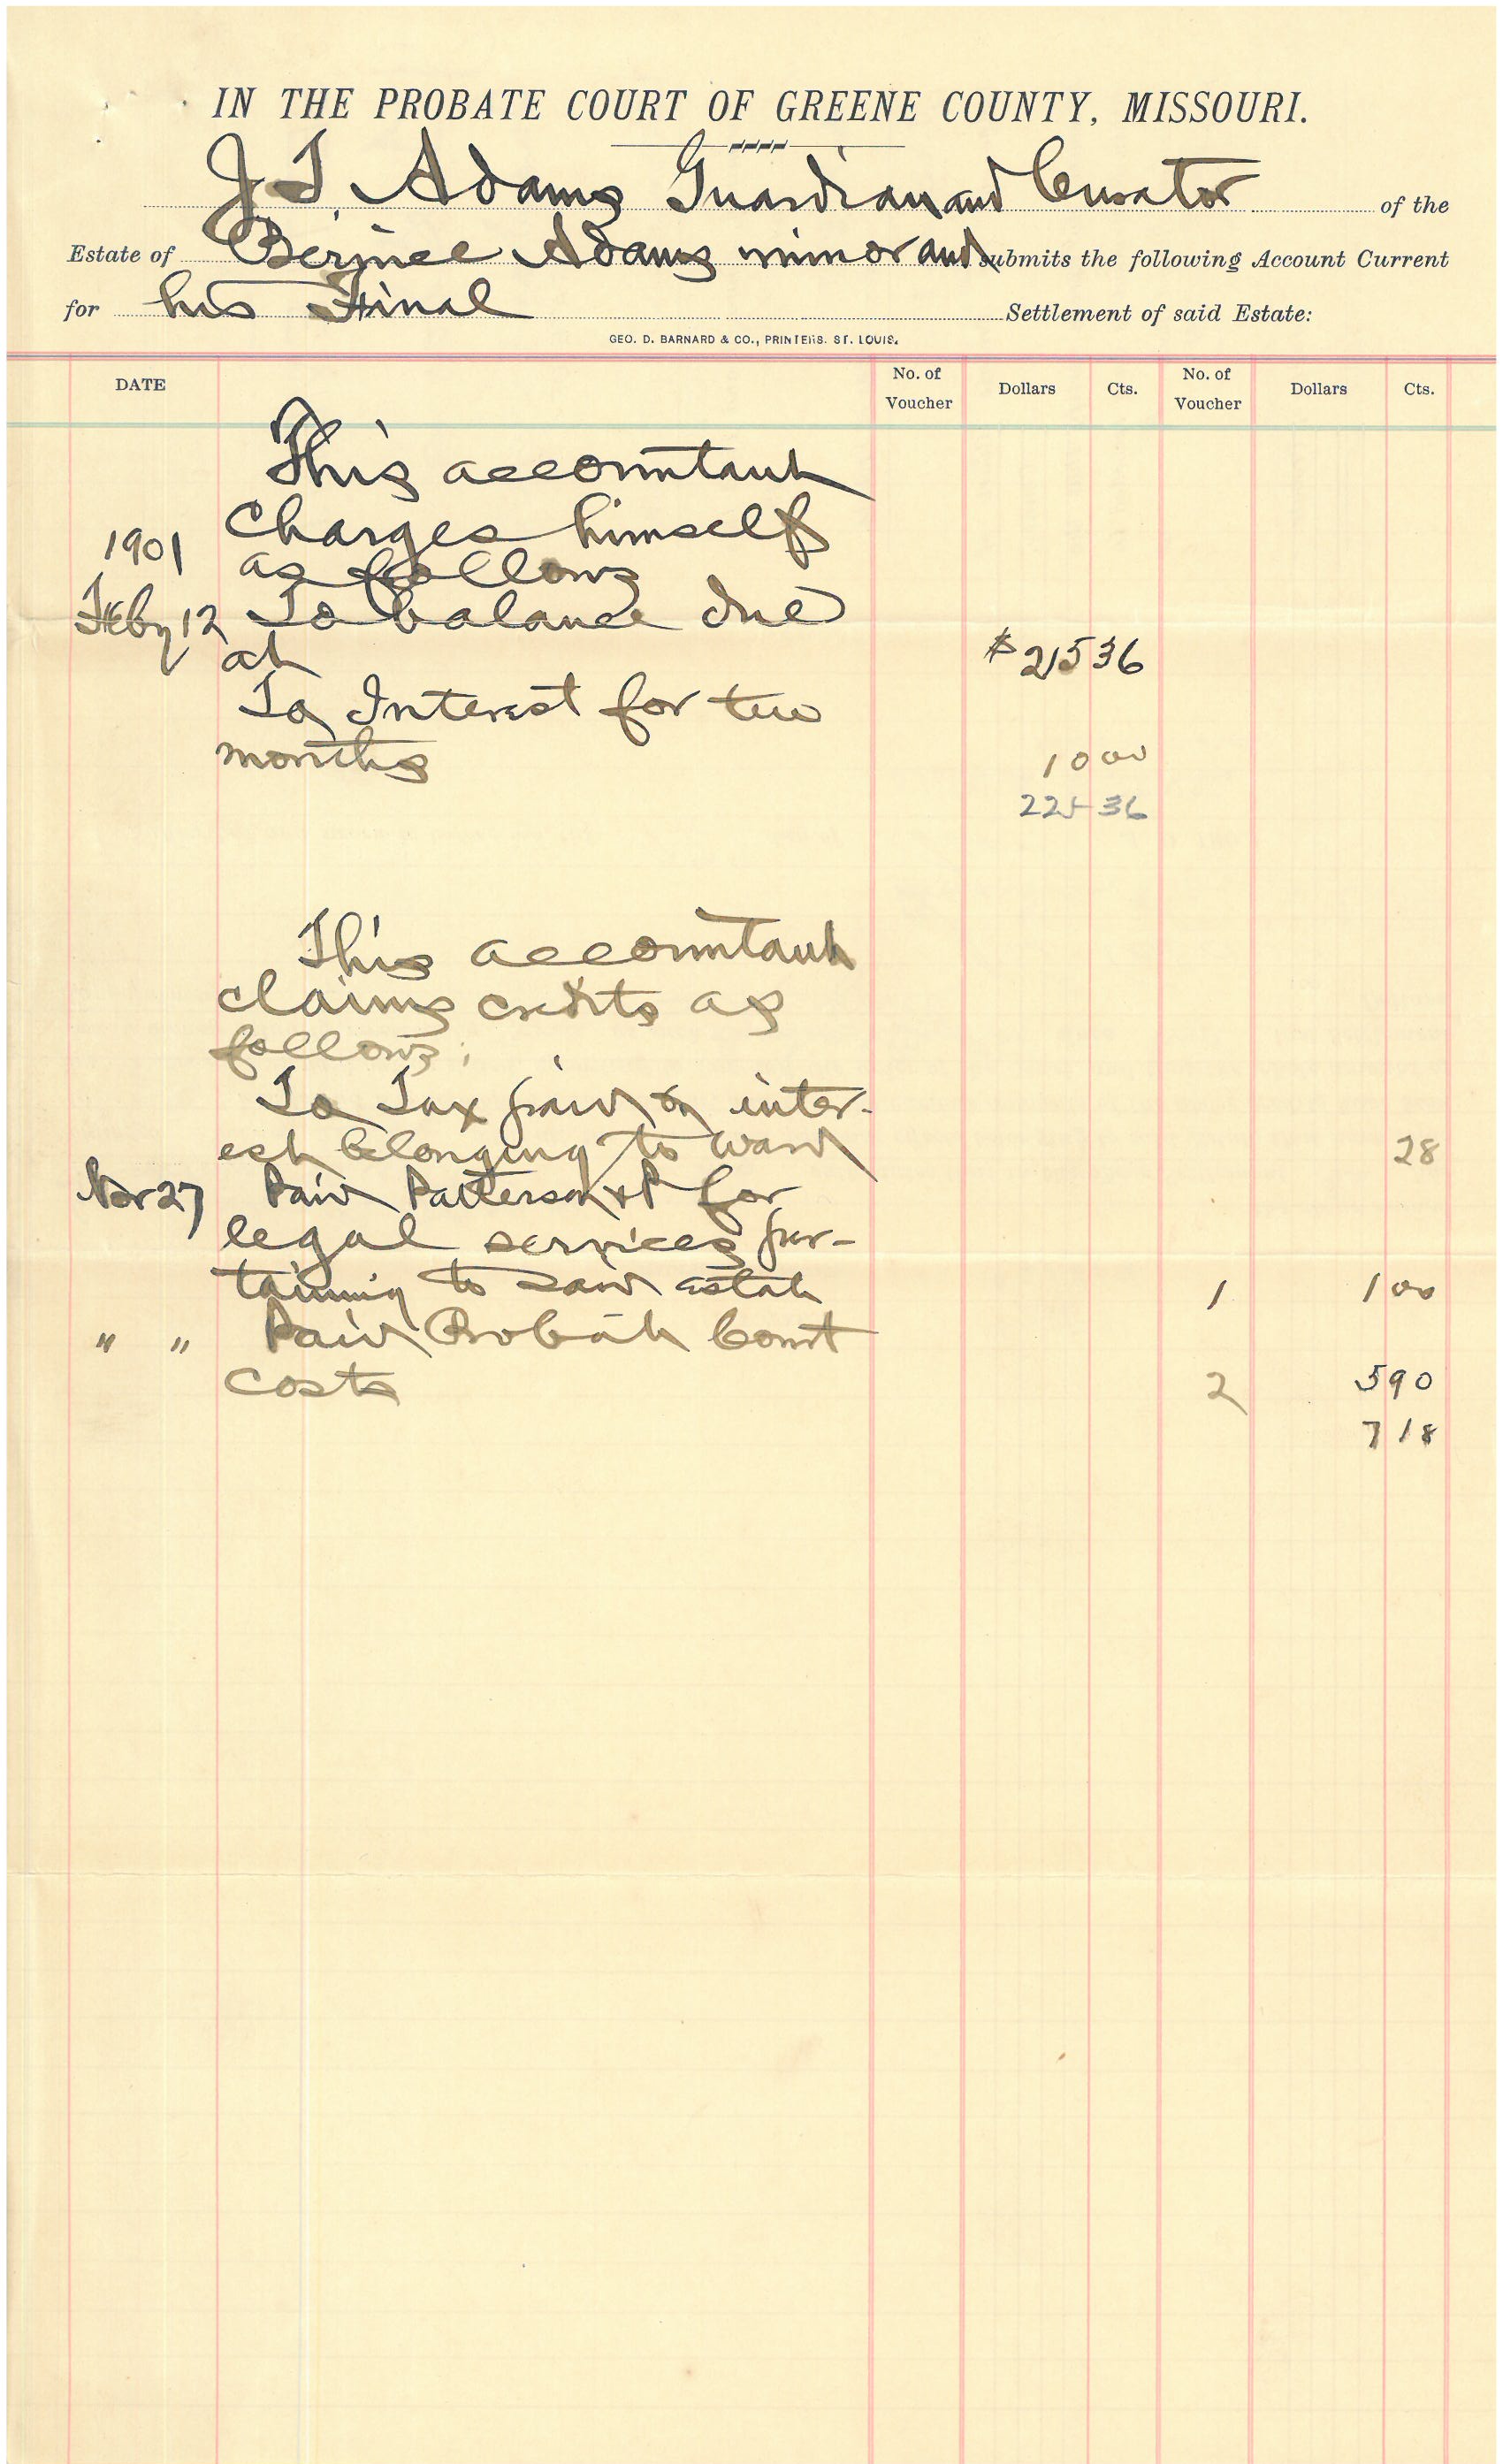 IN THE PROBATE COURT OF GREENE COUNTY, MISSOURI.
J. T. Adams Guardian and Curator of the
Estate of Bernice Adams minor and submits the following Account Current
for his Final Settlement of said Estate:
GEO. D. BARNARD & CO., PRINTERS. ST. LOUIS.
DATE No. of Voucher Dollars Cts. No. of Voucher Dollars Cts.
This accountant
Charges himself
1901
as follows
Feby 12 To balance due
at $215 36
To Interest for two
months 10 00
225 36
This accountant
claims credits as
follows:
To Tax paid on inter-
est belonging to ward 28
Nov 27 Paid Patterson & P for
legal services per-
taining to said estate 1 1 00
" " Paid Probate Court
costs 2 5 90
7 18